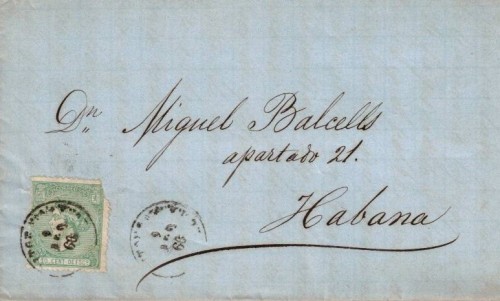 Dn Miguel Balcells
apartado 21.
Habana